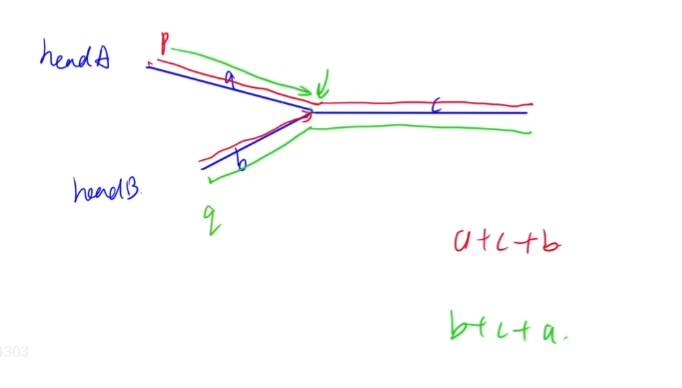 headA
p
a
c
b
headB.
q
a+c+b
b+c+a.
1303